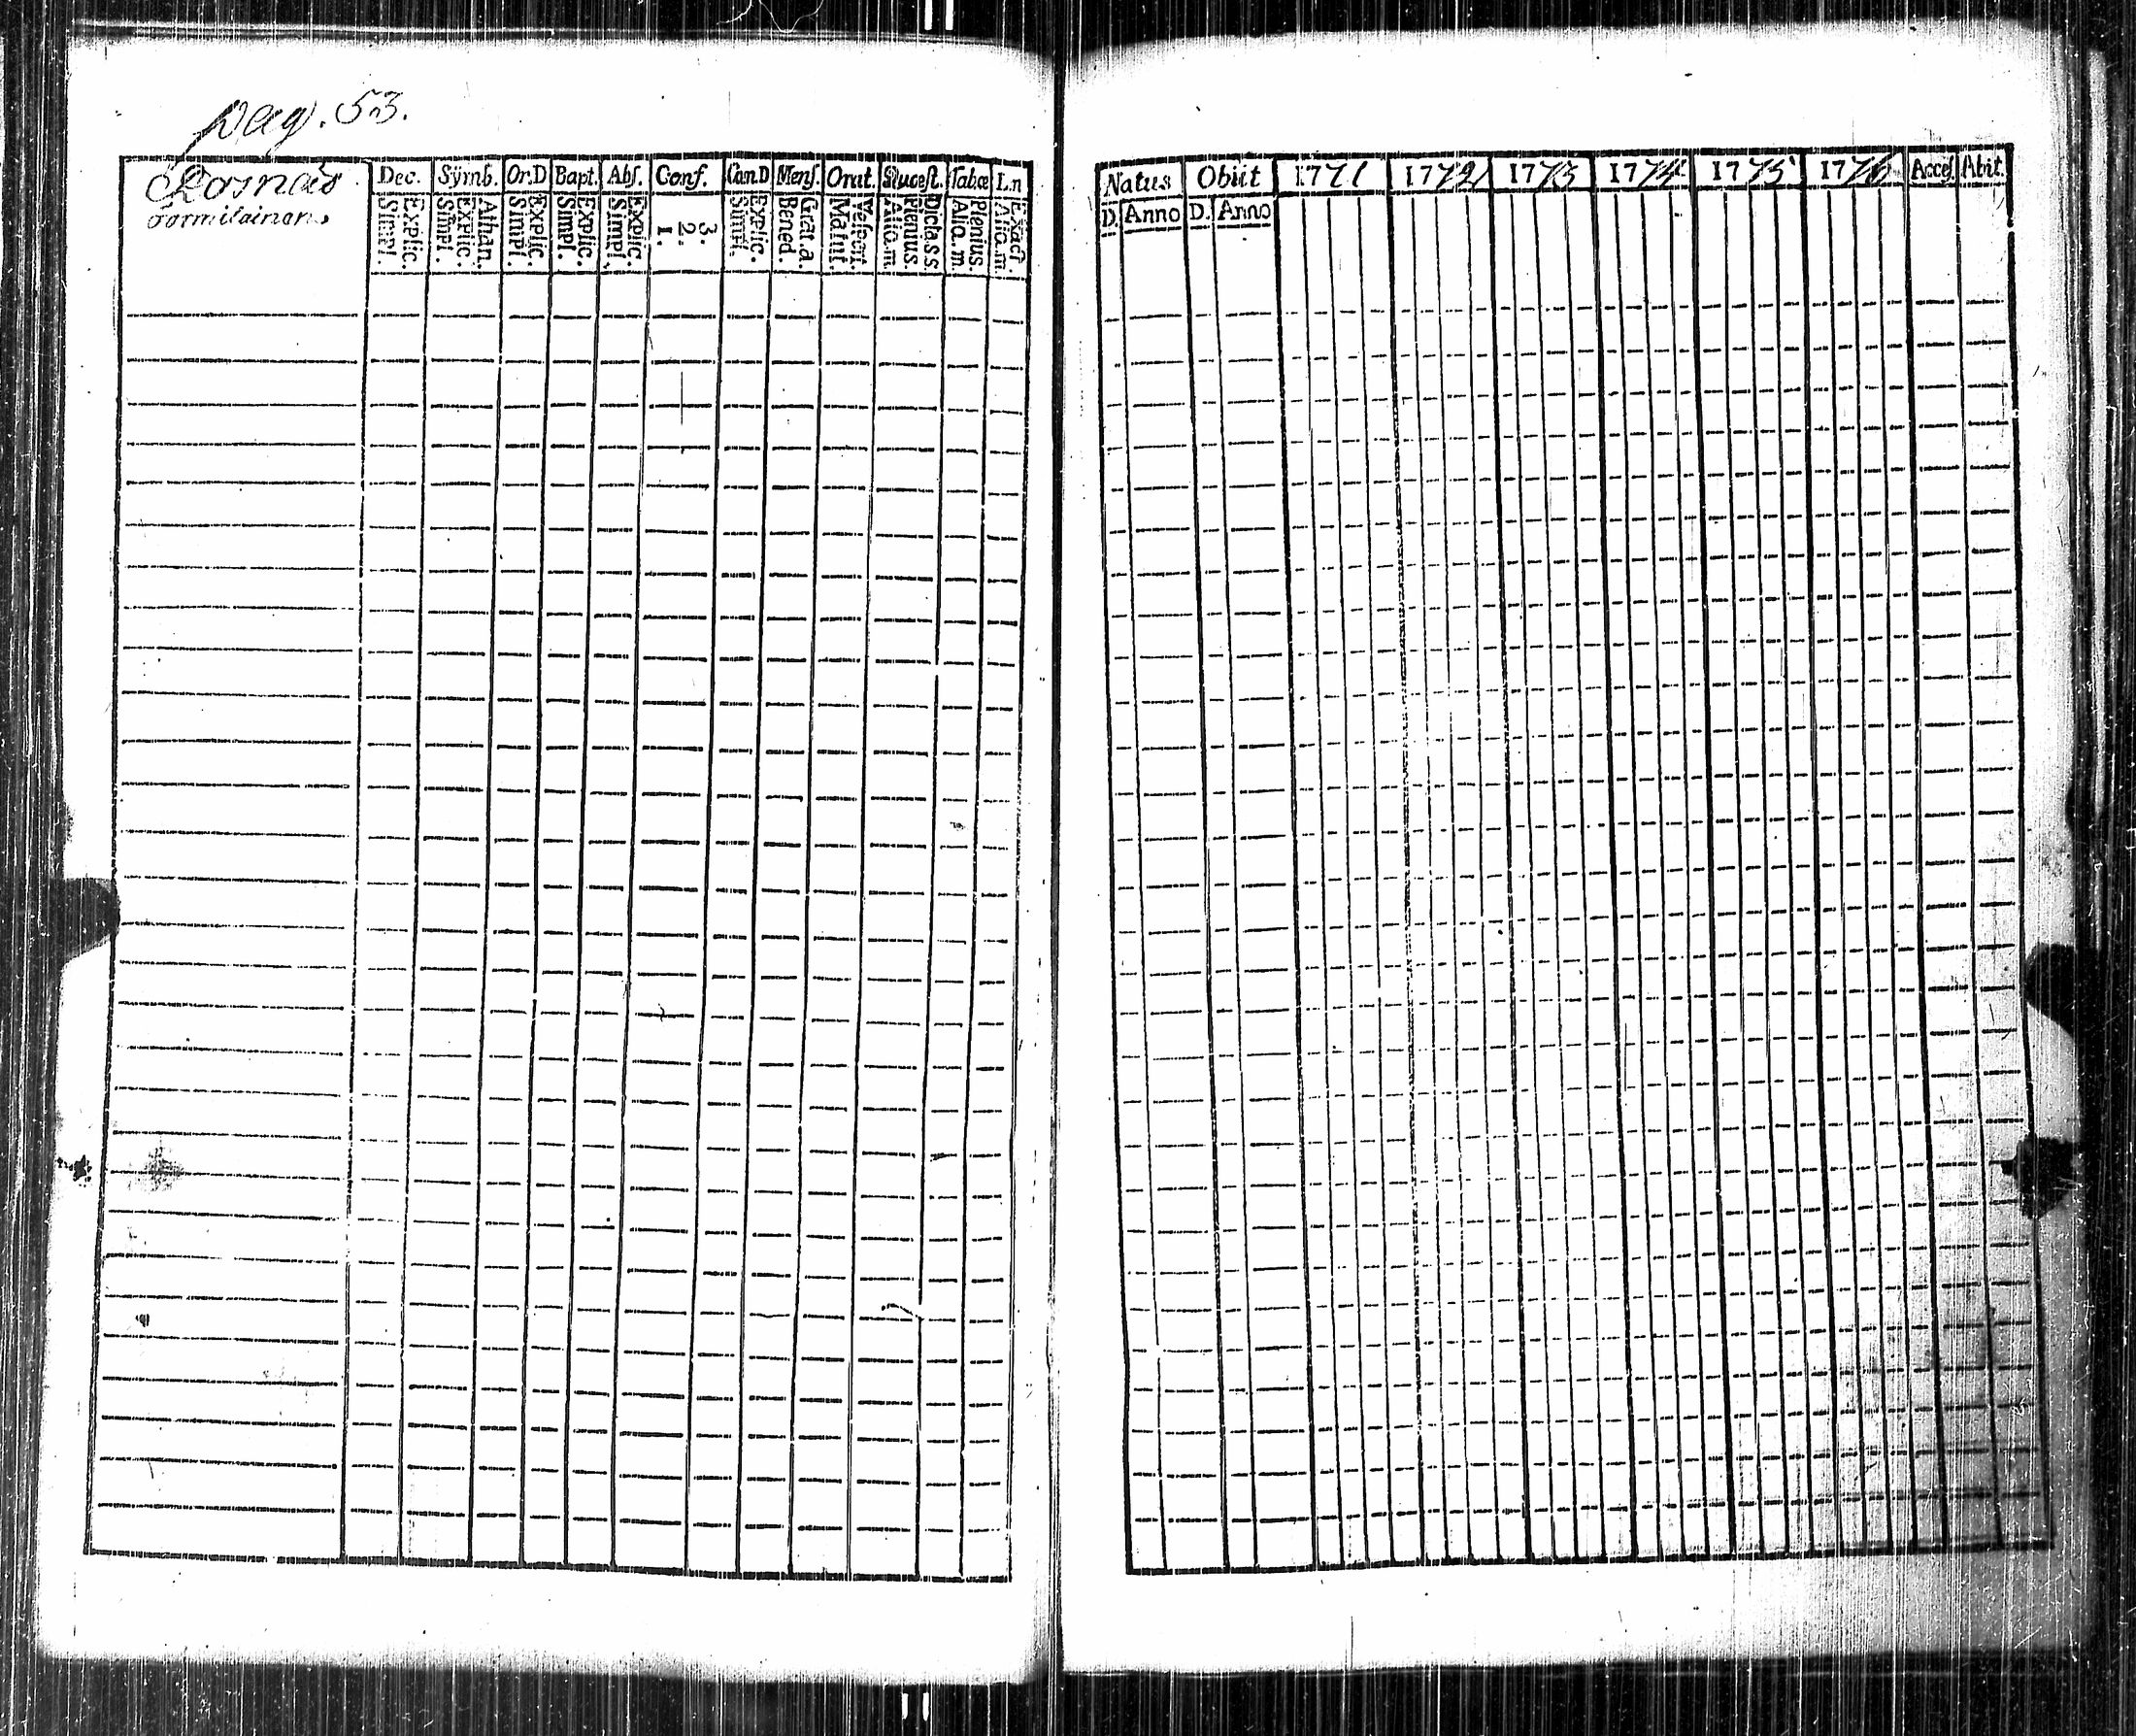 pag. 53.
Posnäs
Dec. Sÿmb. Or.D Bapt. Abſ. Conf. Cæn.D Menſ. Orat. Quæſt. Tab.œ L.n
Explic. Simpl. Athan. Explic. Simpl. Explic. Simpl. Explic. Simpl. Explic. Simpl. 3. 2. 1. Explic. Simpl. Grat. a. Bened. Veſpert. Matut. Dicta. S S Plenius. Aliq. m. Plenius. Aliq. m. Exact. Aliq. m.
Natus Obiit 1771 1772 1773 1774 1775 1776 Acceſ. Abit.
D. Anno D. Anno